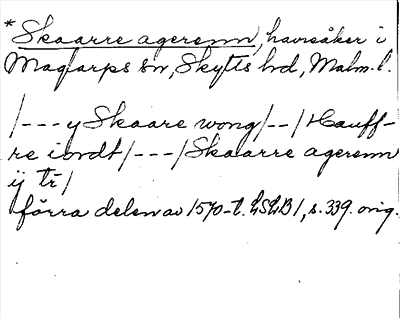 *Skaarre agerenn, havreåker i
Maglarps sn, Skytts hd, Malm. l.
/---y Skaare wong/--/Hauff-
re iordt/---/Skaarre agerenn
ij tr/
förra delen av 1570-t. LSLB 1, s. 339. orig.